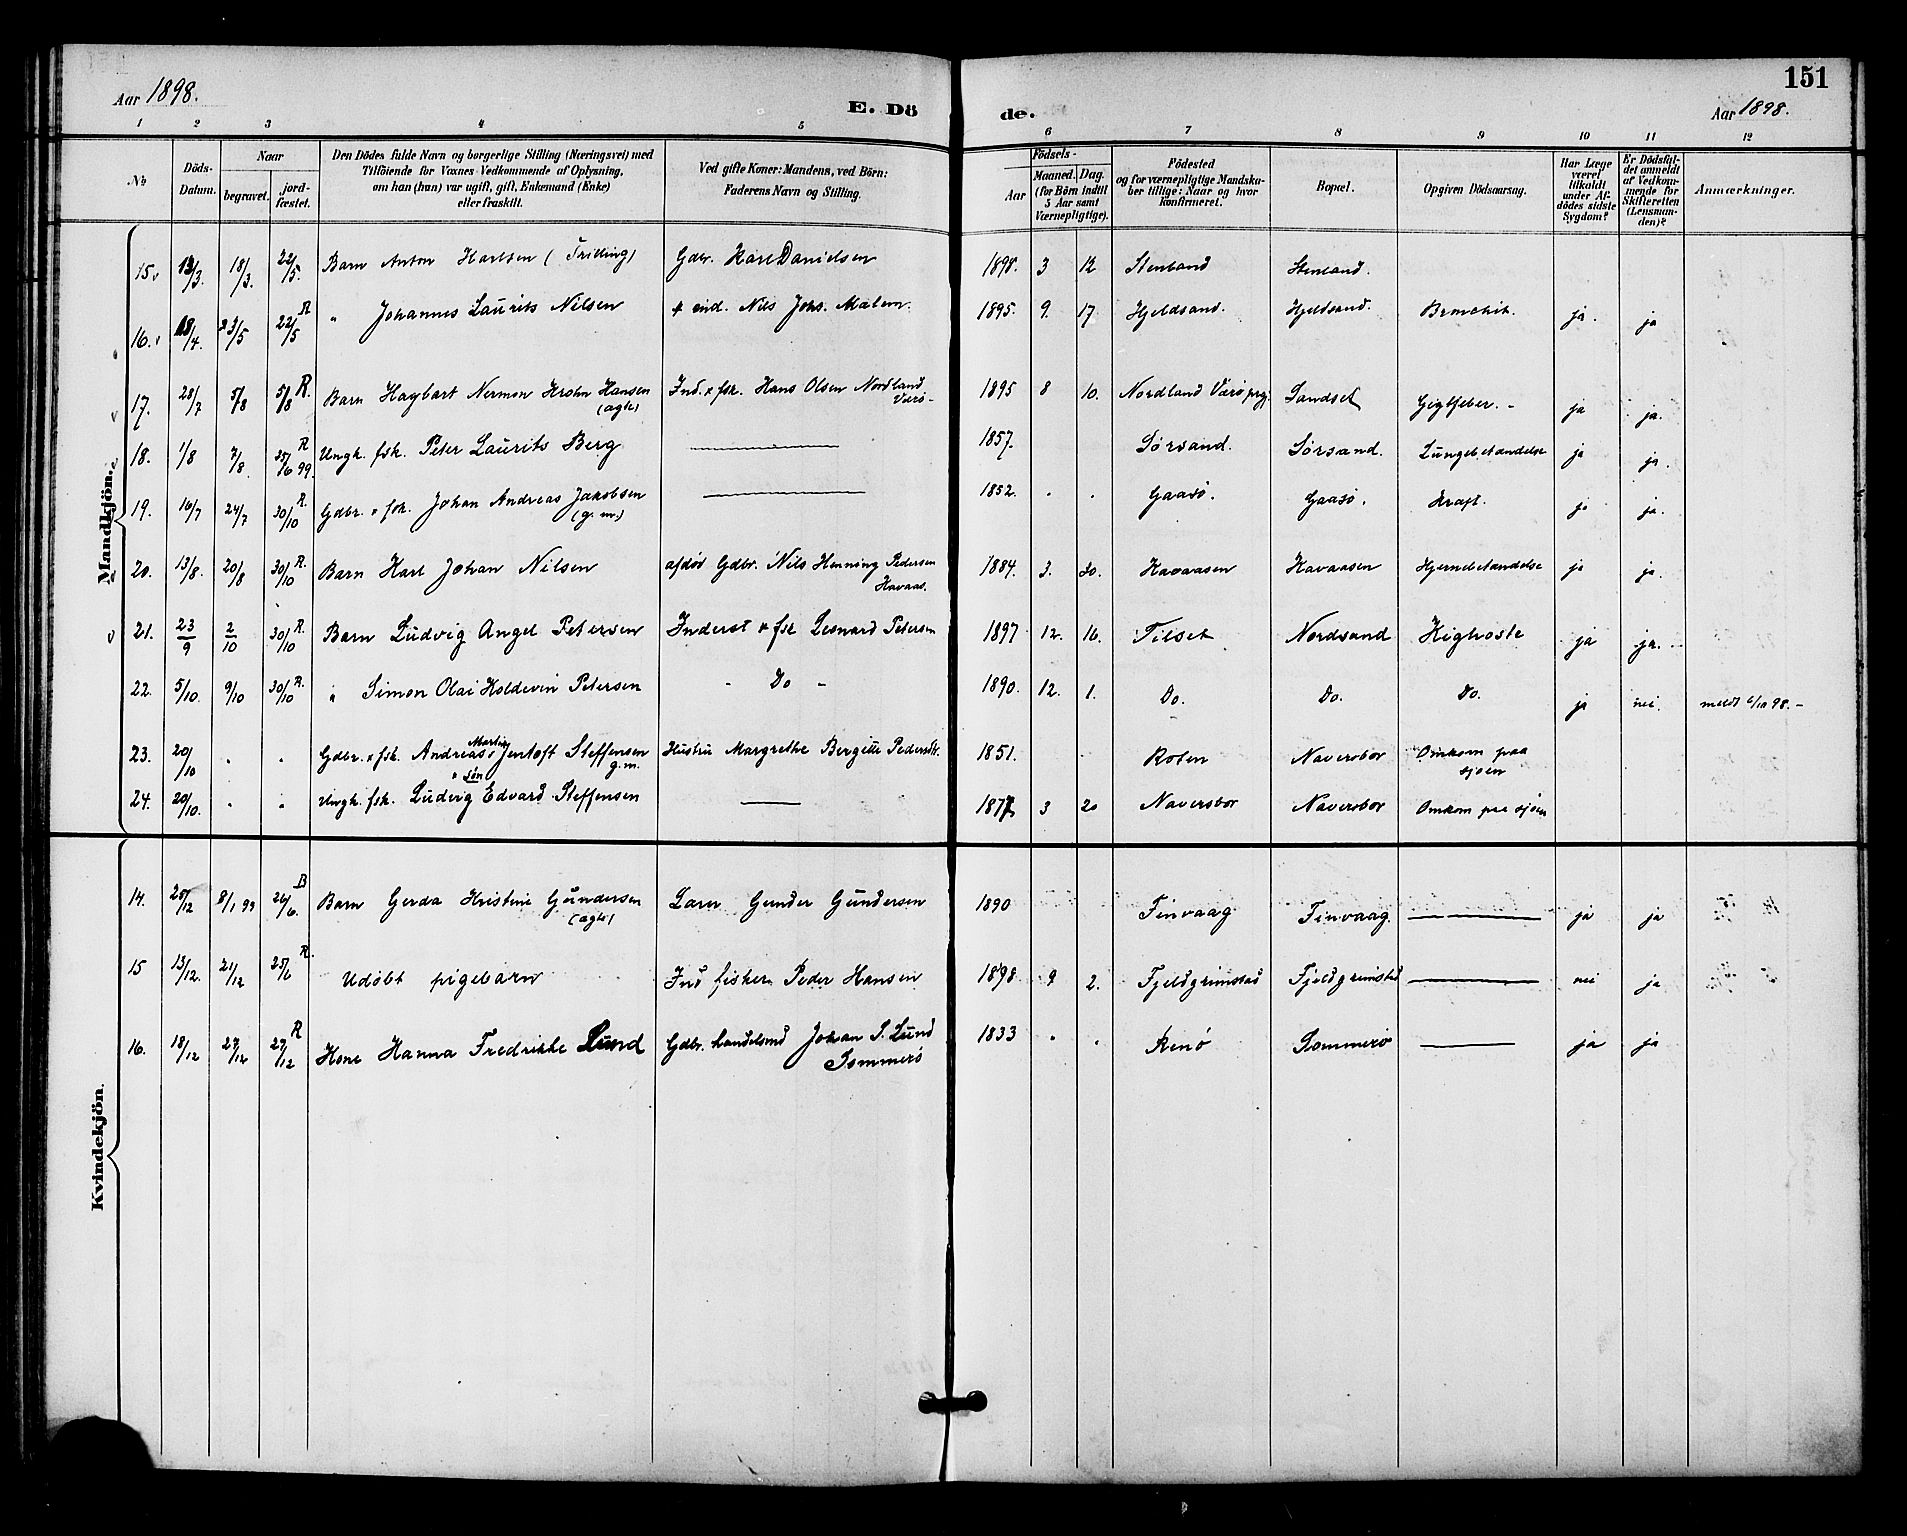 151
Aar 1898. E. Dö de. Aar 1898.
1 2 3 4 5 6 7 8 9 10 11 12
No.
Döds-Datum.
Naar
begravet.
jord-fæstet.
Den Dödes fulde Navn og borgerlige Stilling (Næringsvei) med
Tilföiende for Voxnes Vedkommende af Oplysning,
om han (hun) var ugift, gift, Enkemand (Enke)
eller fraskilt.
Ved gifte Koner: Mandens, ved Börn:
Faderens Navn og Stilling.
Födsels-
Aar
Maaned. Dag.
(for Börn indtil
5 Aar samt
Værnepligtige).
Födested
og for værnepligtige Mandska-
ber tillige: Naar og hvor
konfirmeret.
Bopæl.
Opgiven Dödsaarsag.
Har Læge
været
tilkaldt
under Af-
dödes sidste
Sygdom?
Er Dödsfal-
det anmeldt
af Vedkom-
mende for
Skifteretten
(Lensman-
den)?
Anmærkninger.
Mandkjön.
15. 13/3. 18/3. 22/5. Barn Anton Karlsen (Trilling) Gdbr. Karl Danielsen 1898. 3 12 Stenland Stenland.
16. 18/4. 23/5 22/5 R " Johannes Laurits Nilsen ind. Nils Johs. Mælem. 1895. 9. 17. Hjeldsand. Hjeldsand. Bronchit. ja. ja
17. 28/7 5/8 5/8 R. Barn Hagbart Nermon Krohn Hansen (ægte) Ind. & fsk. Hans Olsen Nordland Værö- 1895 8 10. Nordland Værö prg. Sandset Gigtfeber. - ja ja.
18. 1/8 7/8. 25/6 99. R Ungk. fsk. Peter Laurits Berg — 1857. Sørsand. Sørsand. Lungebetændelse ja ja.
19. 16/7 24/7 30/10 R. Gdbr. & fsk. Johan Andreas Jakobsen (g. m.) — 1852. . . Gaasø. Gaasø. Kræft. ja ja.
20. 13/8. 20/8 30/10 R. Barn Karl Johan Nilsen afdød Gdbr. Nils Henning Pedersen Havaas. 1884. 3. 30. Havaasen Havaasen Hjernebetændelse ja ja.
21. 23/9 2/10 30/10 R. Barn Ludvig Angel Petersen Inderst & fsk Leonard Petersen 1897 12. 16. Tilset Nordsand Kighoste ja ja.
22. 5/10. 9/10 30/10 R. " Simon Olai Koldevin Petersen - Do - 1890. 12. 1. Do. Do. Do. ja nei. meldt 6/12 98.-
23. 20/10 . . Gdbr. & fsk. Andreas Martin Jentoft Steffensen g.m. Hustru Margrethe Bergitte Pedersdtr. 1851. Roten Naversbor Omkom paa sjøen
24. 20/10. . " Ungk. fsk. " søn Ludvig Edvard Steffensen — 1877 3 20 Naversbor Naversbor Omkom paa sjøen
Kvindekjön.
14. 25/12 8/1 99 26/6. B Barn Gerda Kristine Gundersen (ægte) Lærer Gunder Gundersen 1890 Finvaag Finvaag. — ja ja
15 13/12. 21/12 25/6 R. Udøbt pigebarn Ind fisker Peder Hansen 1898. 9 2. Fjeldgrimstad Fjeldgrimstad — nei ja
16. 18/12 27/12 27/12 R Kone Hanna Fredrikke Lund Gdbr. handelsmd Johan S. Lund Sommerø 1833 . . Renø Sommerø — ja ja